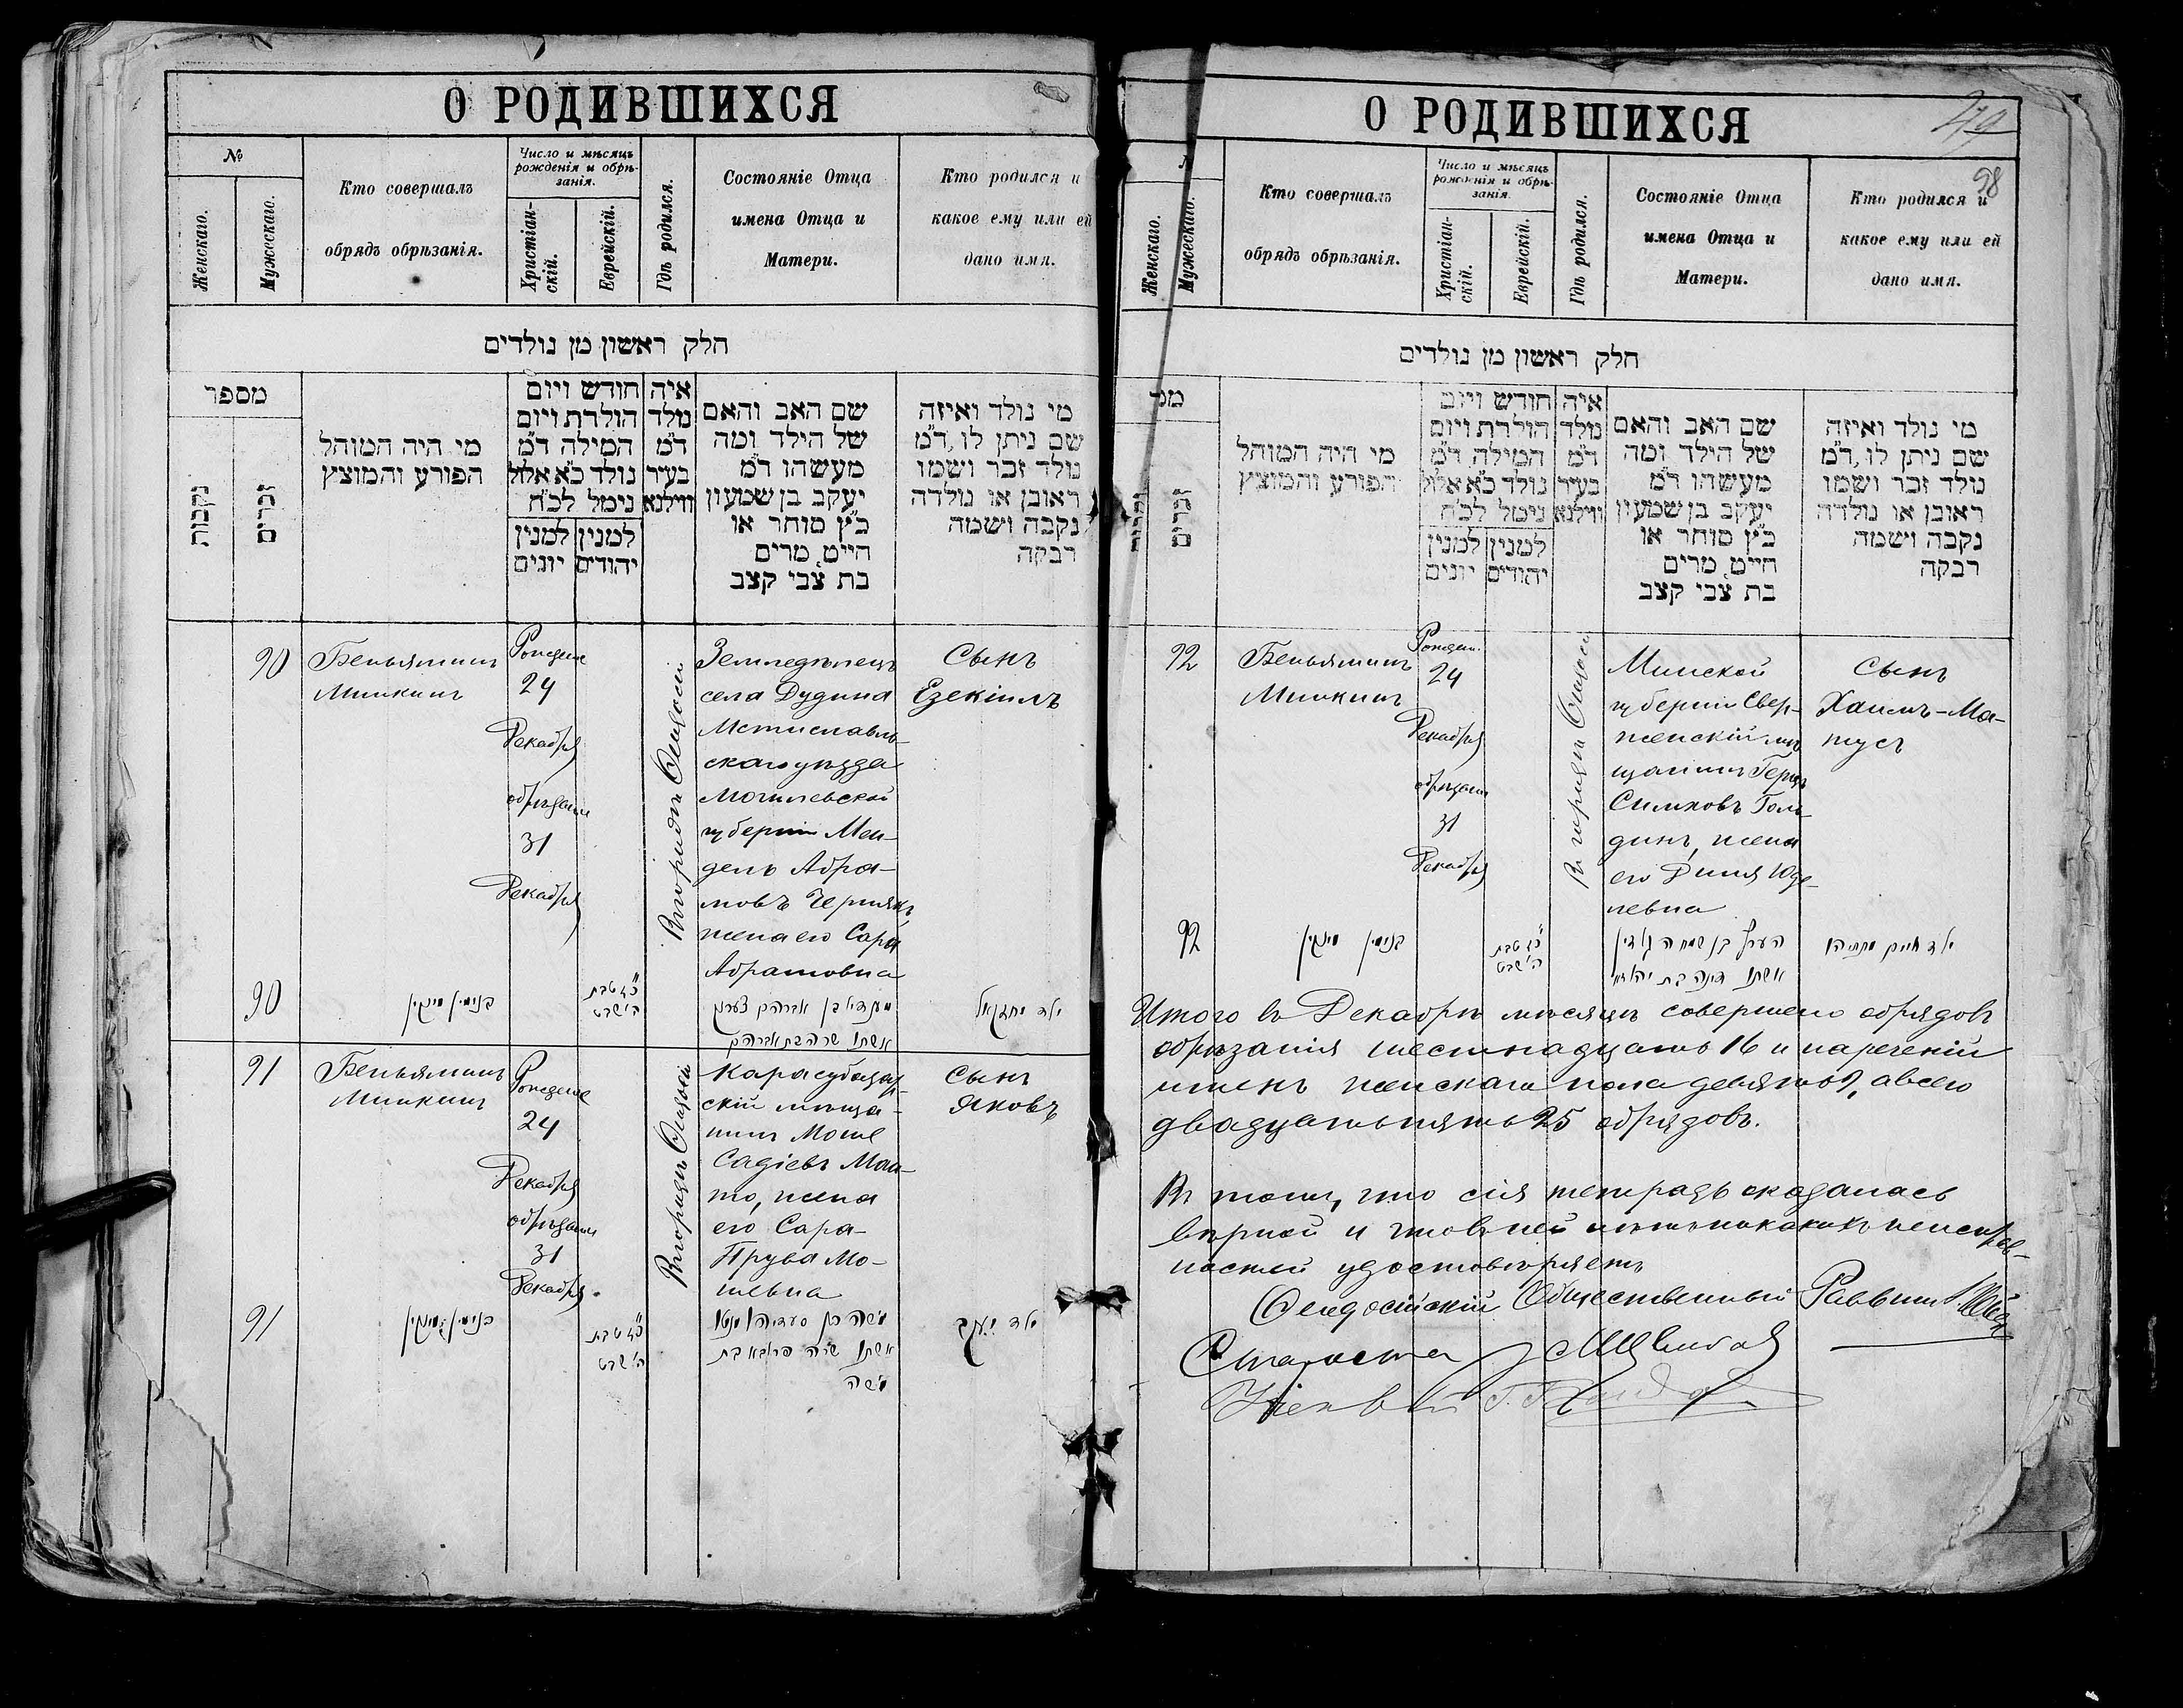 О РОДИВШИХСЯ
№
Женскаго.
Мужескаго.
Кто совершалъ
обрядъ обрѣзанія.
Число и мѣсяцъ
рожденія и обрѣ-
занія.
Христіан-
скій.
Еврейскій.
Гдѣ родился.
Состояніе Отца
имена Отца и
Матери.
Кто родился и
какое ему или ей
дано имя.
חלק ראשון מן נולדים
מספר
נקבות
זכרים
מי היה המוהל
הפורע והמוצץ
חודש ויום
הולדת ויום
המילה ד״מ
נולד כ״א אלול
נימל לכ״ח
למנין
יהודים
למנין
יונים
איה
נולד
ד״מ
בעיר
ווילנא
שם האב והאם
של הילד ומה
מעשהו ד״מ
יעקב בן שמעון
כ״ץ סוחר או
חייט, מרים
בת צבי קצב
מי נולד ואיזה
שם ניתן לו, ד״מ
נולד זכר ושמו
ראובן או נולדה
נקבה ושמה
רבקה
90
Беньяминъ
Минкинъ
Рожденіе
24
Декабря
обрѣзаніе
31
Декабря
Въ городѣ Ѳеодосіи
Земледѣлецъ
села Дудина
Мстиславль-
скаго уѣзда
Могилевской
губерніи Мен-
дель Абра-
мовъ Чернякъ
жена его Сара
Абрамовна
Сынъ
Езекіиль
90
בנימין מינקין
כ״ג טבת
ה׳ שבט
מענדיל בן אברהם
אשתו שרה בת אברהם
ילד יחזקאל
91
Беньяминъ
Минкинъ
Рожденіе
24
Декабря
обрѣзаніе
31
Декабря
Въ городѣ Ѳеодосіи
Карасубазар-
скій мѣща-
нинъ Моше
Садіевъ Ман-
то, жена
его Сара-
Прува Мо-
шевна
сынъ
Яковъ
91
בנימין מינקין
כ״ג טבת
ה׳ שבט
משה בן סעדיהו מנטו
אשתו שרה פרובא בת
משה
ילד יעקב
О РОДИВШИХСЯ
49
98
Женскаго.
Мужескаго.
Кто совершалъ
обрядъ обрѣзанія.
Число и мѣсяцъ
рожденія и обрѣ-
занія.
Христіан-
скій.
Еврейскій.
Гдѣ родился.
Состояніе Отца
имена Отца и
Матери.
Кто родился и
какое ему или ей
дано имя.
חלק ראשון מן נולדים
מי היה המוהל
הפורע והמוצץ
חודש ויום
הולדת ויום
המילה ד״מ
נולד כ״א אלול
נימל לכ״ח
למנין
יהודים
למנין
יונים
איה
נולד
ד״מ
בעיר
ווילנא
שם האב והאם
של הילד ומה
מעשהו ד״מ
יעקב בן שמעון
כ״ץ סוחר או
חייט, מרים
בת צבי קצב
מי נולד ואיזה
שם ניתן לו, ד״מ
נולד זכר ושמו
ראובן או נולדה
נקבה ושמה
רבקה
92
Беньяминъ
Минкинъ
Рожден.
24
Декабря
обрѣзаніе
31
Декабря
Въ городѣ Ѳеодосіи
Минской
губерніи Свер-
женскій мѣ
щанинъ Герцъ
Симховъ Голь-
динъ, жена
его Диня Юде-
левна
Сынъ
Хаимъ-Ма-
тусъ
92
בנימין מינקין
כ״ג טבת
ה׳ שבט
הערץ בן שמחה גאלדין
אשתו דינה בת יהודא
ילד חיים מתתיהו
Итого въ Декабрѣ мѣсяцѣ совершено обрядовъ
обрѣзанія шестнадцать 16 и нареченій
именъ женскаго пола девять 9, а всего
двадцать пять 25 обрядовъ.
Въ томъ, что сія тетрадь оказалась
вѣрной и что въ ней нѣтъ никакихъ неисправ-
ностей удостовѣряетъ
Ѳеодосійскій Общественный Раввинъ
Староста